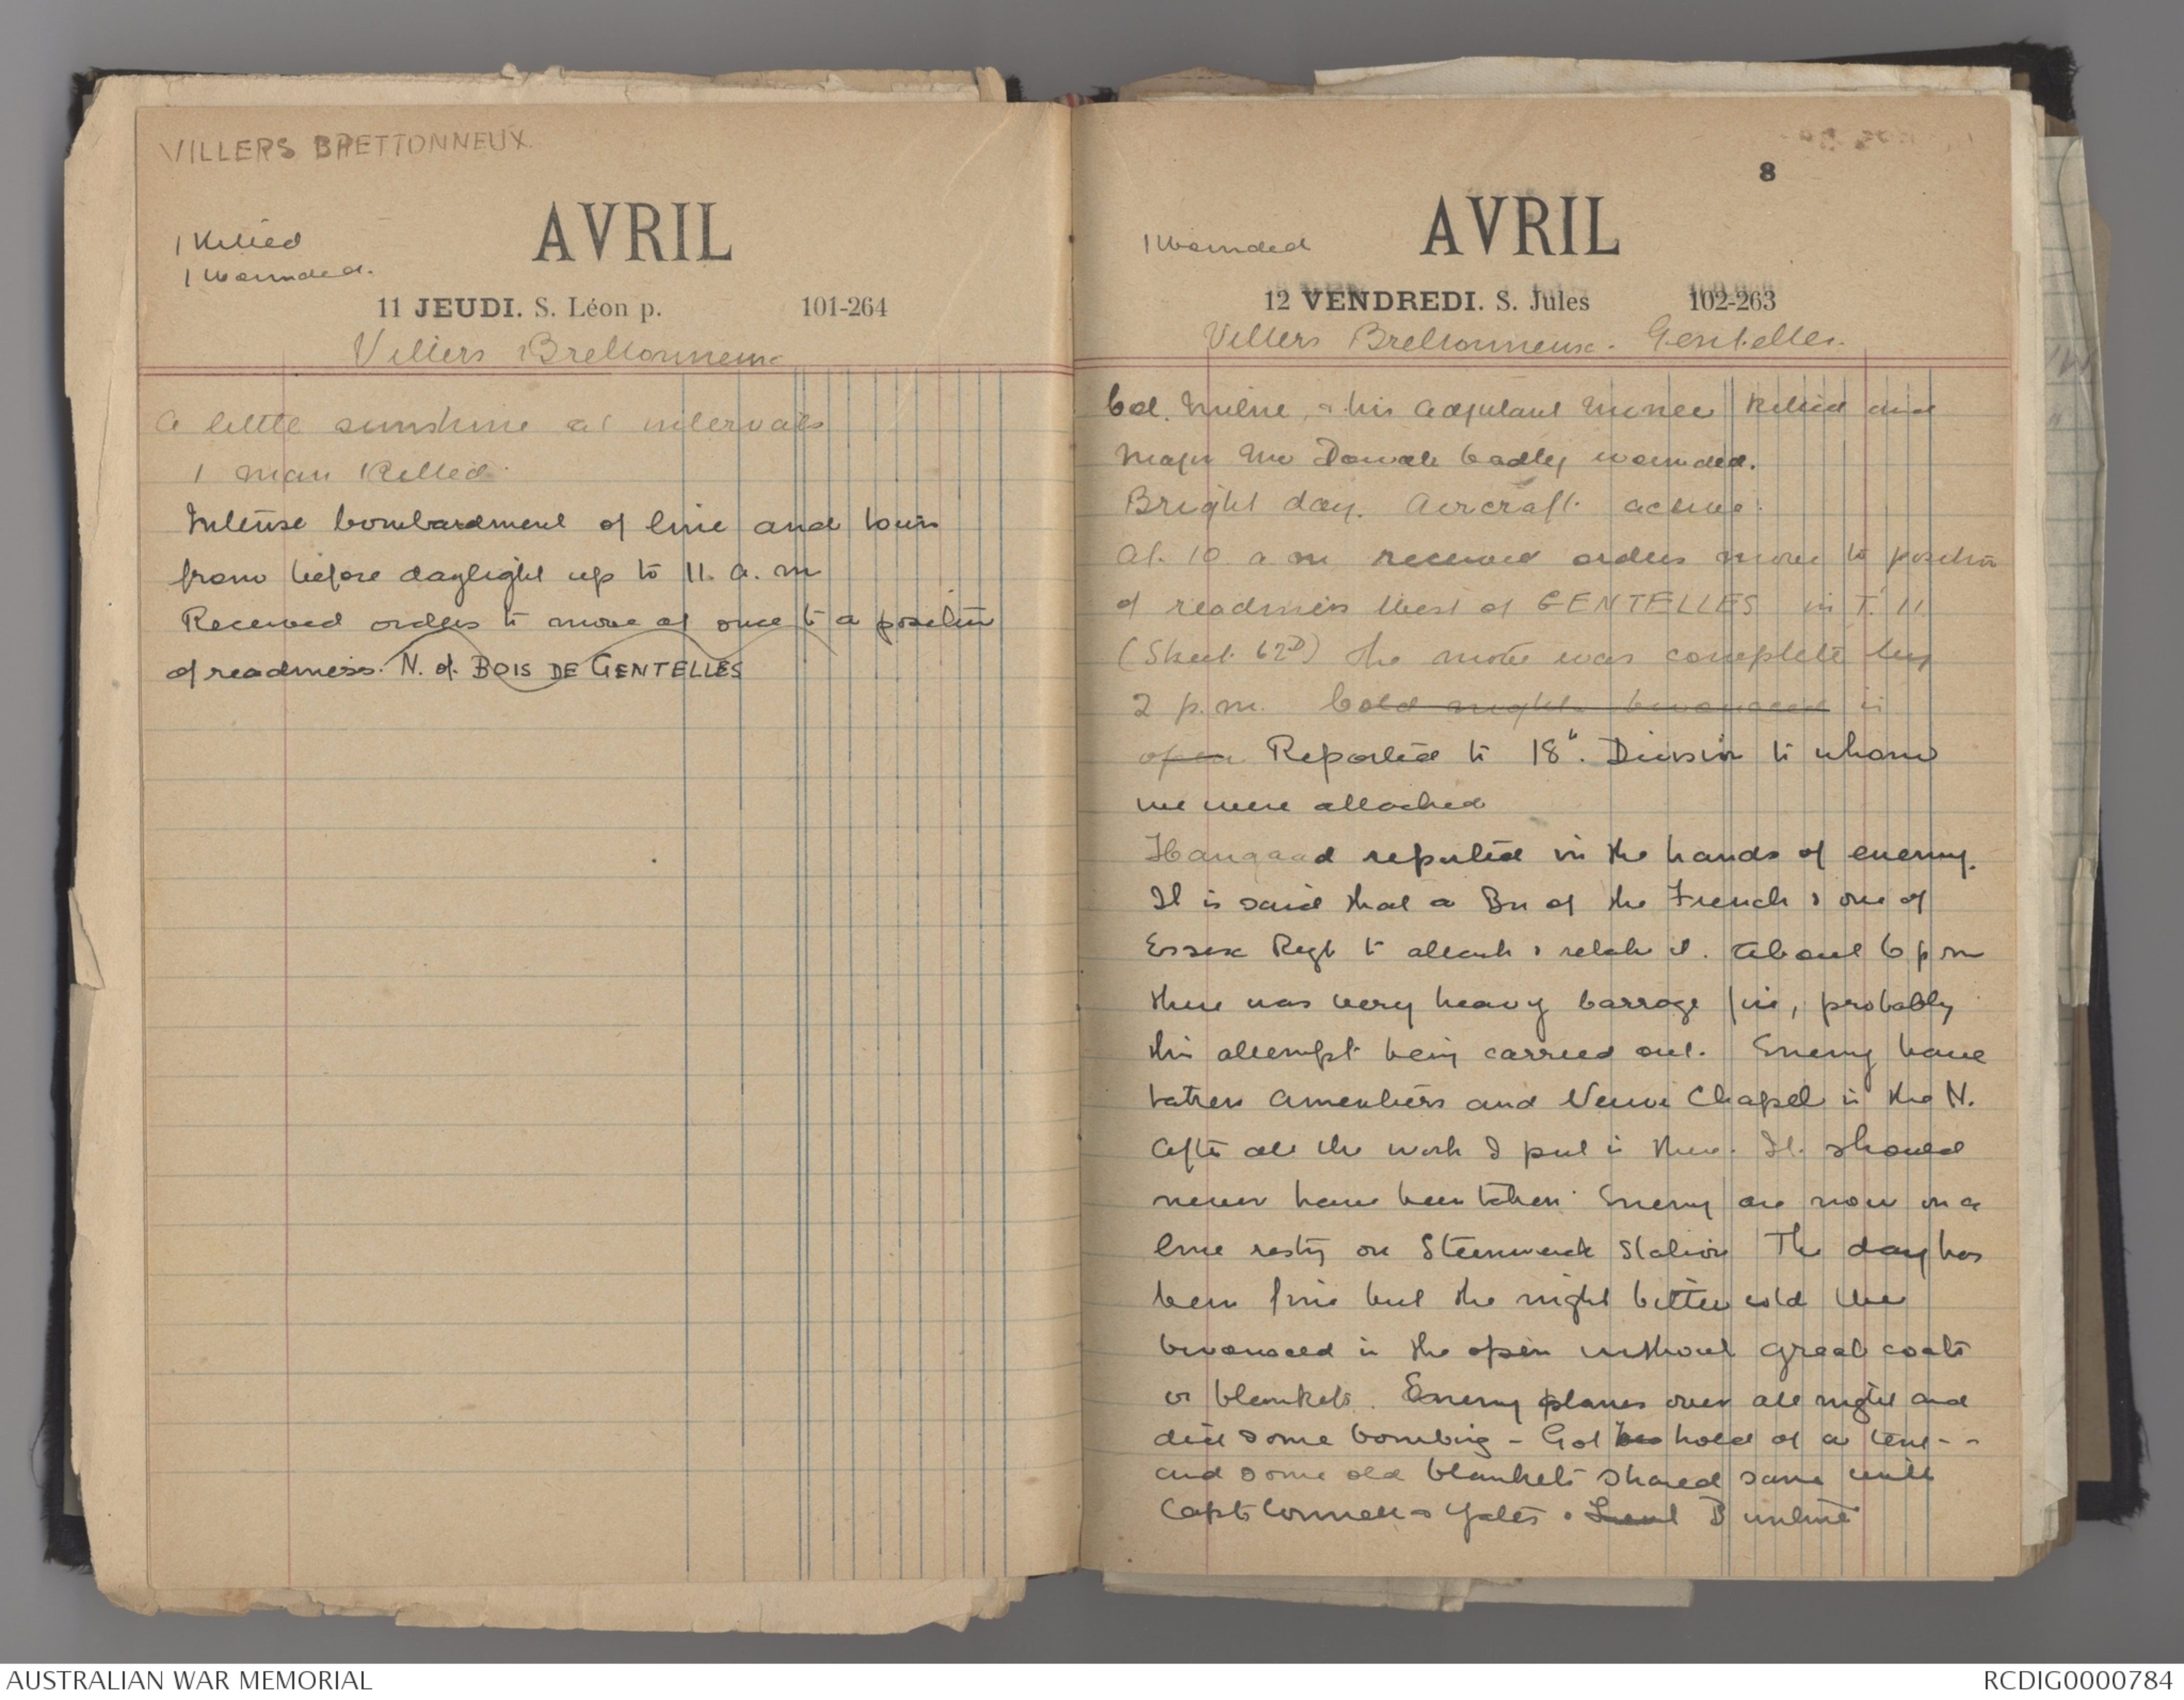 VILLERS BRETTONNEUX
1 Killed
1 Wounded.
AVRIL
11 JEUDI. S. Léon p. 101-264
Villers Brettonneux
A little sunshine at intervals
1 man Killed.
Intense bombardment of line and town
from before daylight up to 11. a. m
Received orders to move at once to a position
of readiness. N. of. BOIS DE GENTELLES
8
1 Wounded
AVRIL
12 VENDREDI. S. Jules 102-263
Villers Brettonneux. Gentelles.
Col. Milne, & his Adjutant killed and
Major badly wounded.
Bright day. Aircraft active.
At. 10 a m received orders move to position
of readiness West of GENTELLES in T. 11
(Sheet 62D) The move was complete by
2 p.m. Cold night. bivouaced in
open Reported to 18". Division to whom
we were attached
Hangaad reported in the hands of enemy.
It is said that a Bn of the French & one of
Essex Regt to attack & retake it. About 6 p m
there was very heavy barrage fire, probably
this attempt being carried out. Enemy have
taken Armentiers and Neuve Chapel in the N.
After all the work I put in there. It should
never have been taken. Enemy are now on a
line resting on Steenwerck Station The day has
been fine but the night bitter cold We
bivouaced in the open without great coats
or blankets. Enemy planes over all night and
did some bombing - Got hold of a tent - -
and some old blankets shared same with
Capts Connell & Yates & Lieut